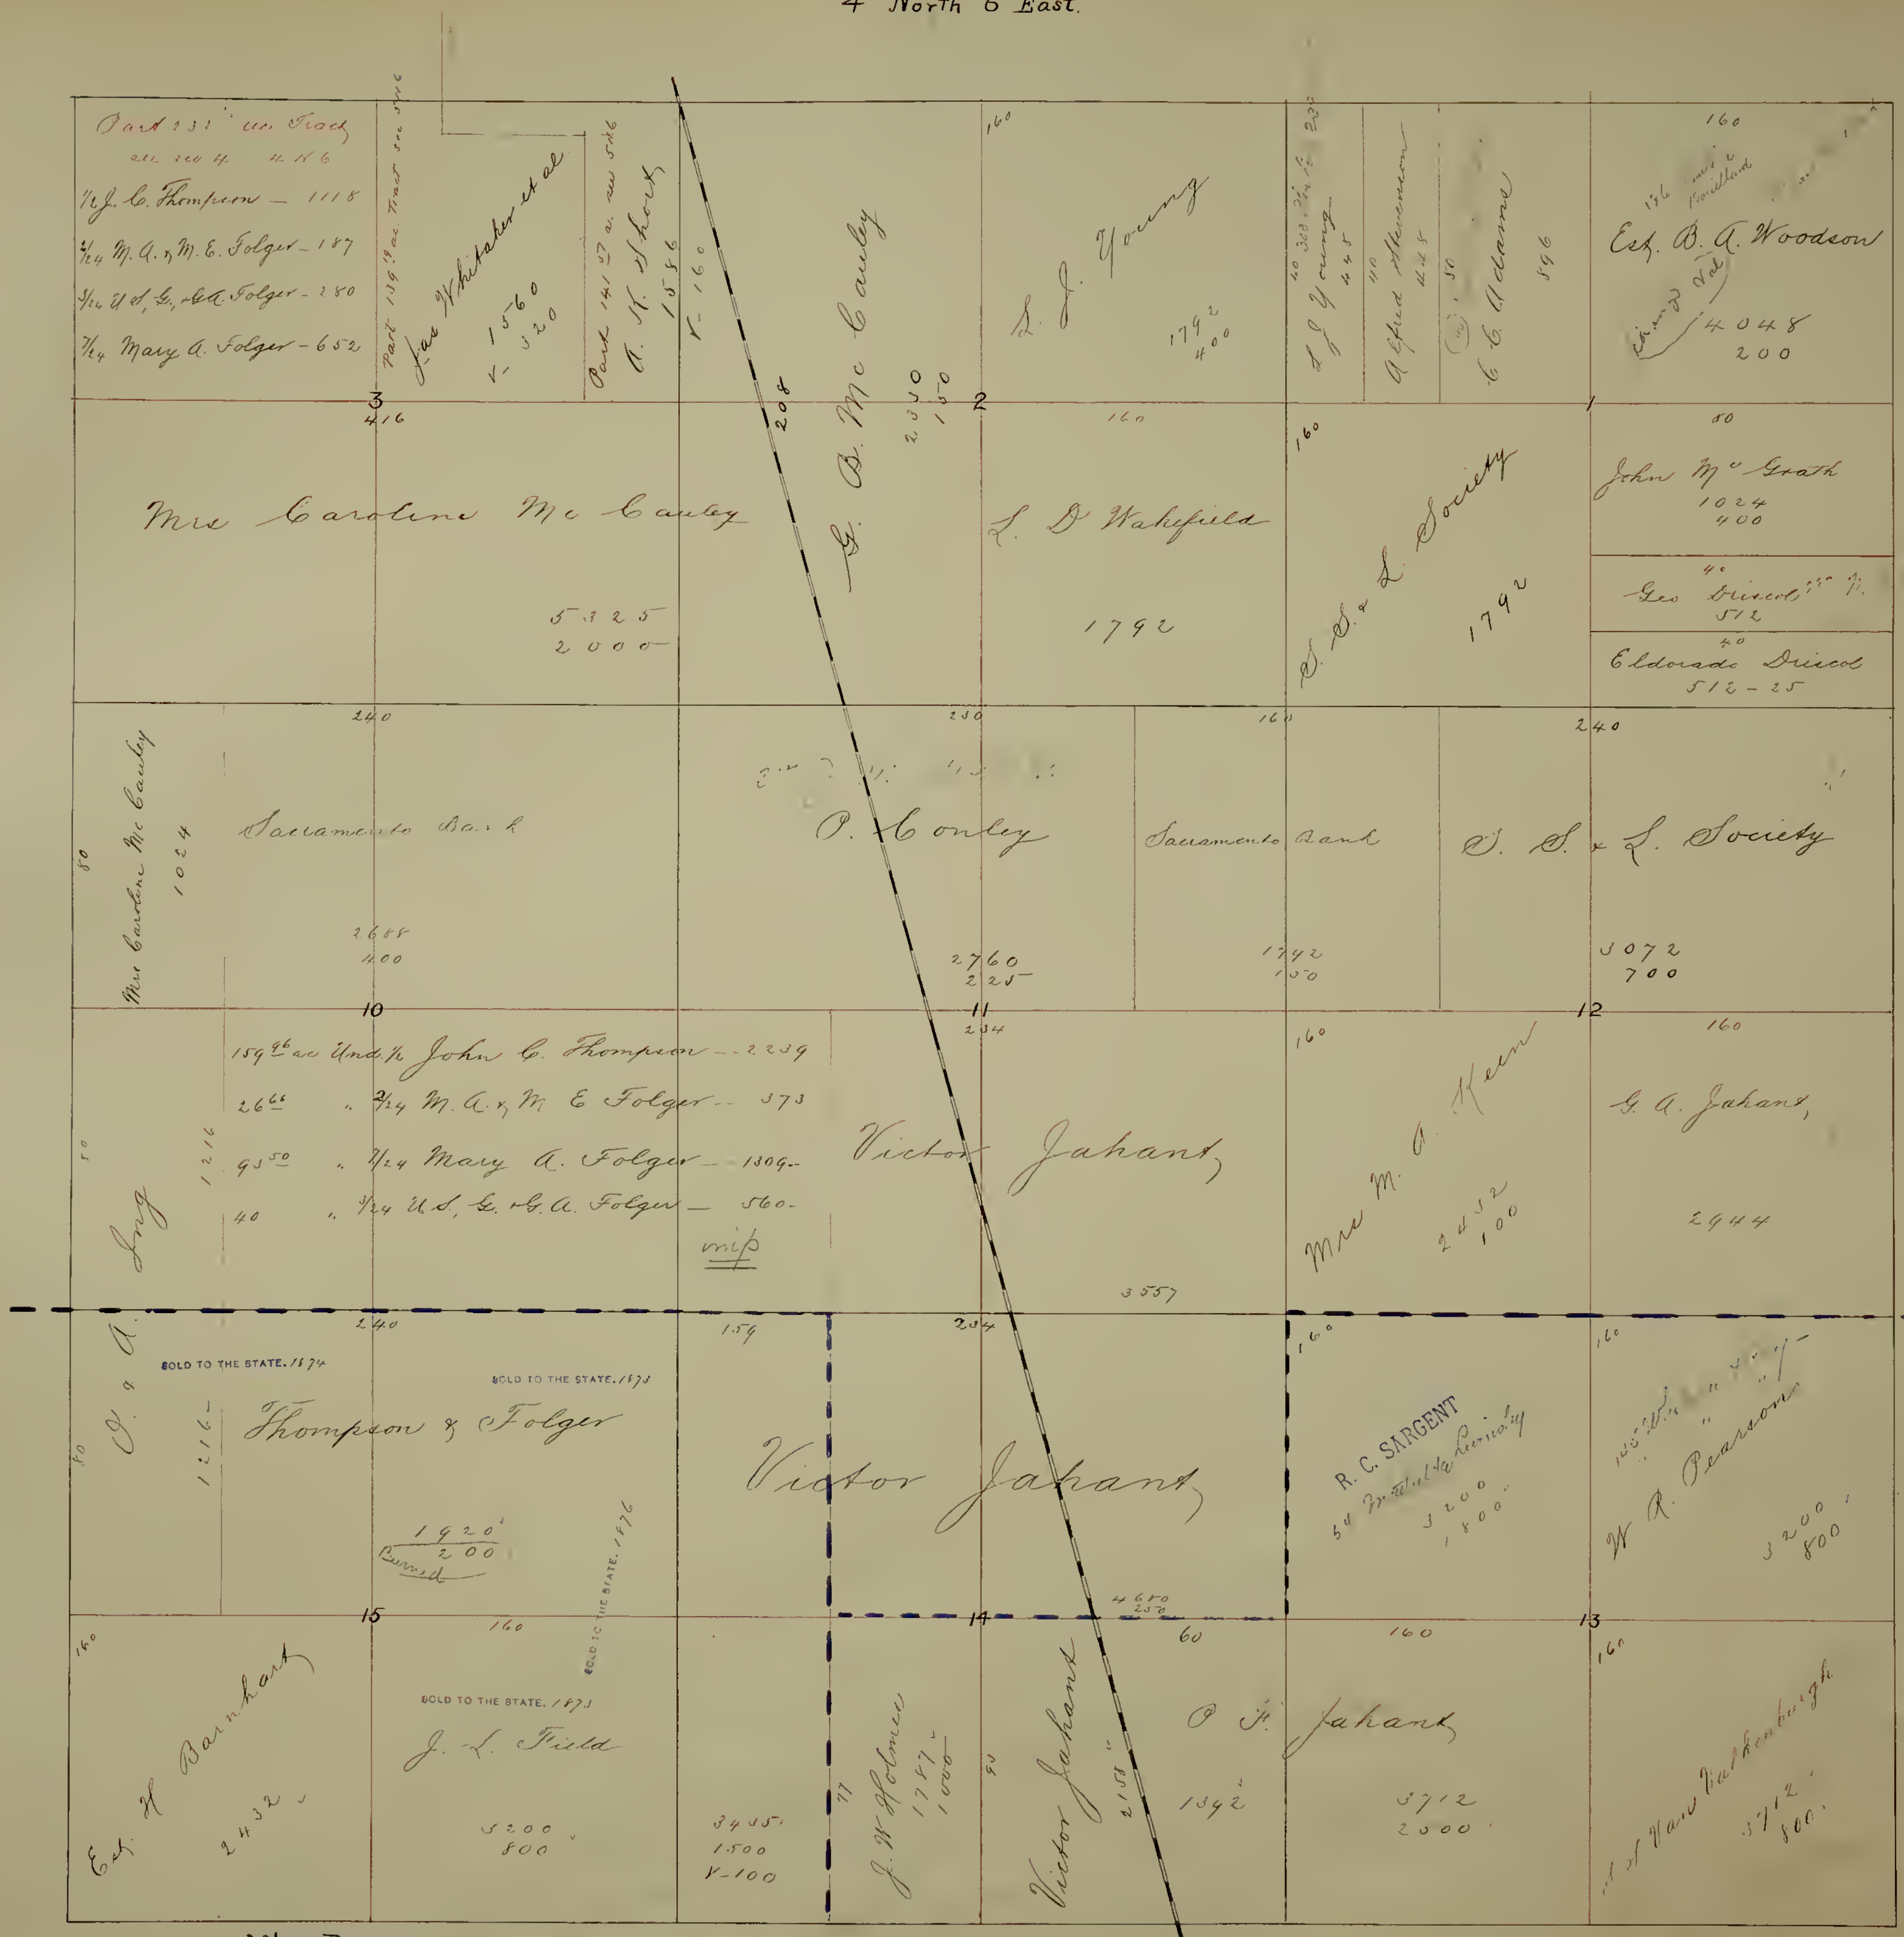 4 North 6 East.
Part 232 ac Tract
see sec 4 4 N 6
1/2 J. C. Thompson — 1118
2/24 M. A. & M. E. Folger — 187
3/24 U. S. G. & G. A. Folger — 280
7/24 Mary A. Folger — 652
Part 139 ac. Tract see 5N6
Whitaker et al
V- 1560
320
Part 141 ac. see 5N6
A. K. Short
1586
V-160
208
G. B. Mc Cauley
2330
150
160
Young
1792
400
40
L J Young
448
40
Alfred Stevenson
448
80
C C Adams
896
160
Est. B. A. Woodson
4048
200
3
416
2
160
160
1
80
Mrs Caroline Mc Cauley
5325
2000
L D Wakefield
1792
S. S. & L. Society
1792
John Mc Grath
1024
400
40
Geo Driscol
512
40
Eldorado Driscol
512-25
240
230
160
240
80
Mrs Caroline Mc Cauley
1024
Sacramento Bank
2688
400
P. Conley
2760
225
Sacramento Bank
1792
150
S. S. & L. Society
3072
700
10
11
12
234
160
160
159 96 ac Und. 1/2 John C. Thompson -- 2239
26 66 " 2/24 M. A. & M E Folger -- 373
93 50 " 7/24 Mary A. Folger — 1309-
40 " 3/24 U. S. G. & G. A. Folger — 560-
mip
1216
Victor Jahant
3557
Mrs M. A. Keen
2432
100
G. A. Jahant
2944
240
159
234
160
160
80
O. & A. Ing
1216-
SOLD TO THE STATE. 1874
SOLD TO THE STATE. 1873
Thompson & Folger
1920
200
Burned
SOLD TO THE STATE. 1876
Victor Jahant
4680
250
R. C. SARGENT
3200
1800
W R. Pearson
3200
800
15
14
13
160
160
60
160
160
Est. H Barnhart
2432
SOLD TO THE STATE. 1873
J. L. Field
3200
800
3435
1500
V-100
77
J. W Holmes
1787
1000
93
Victor Jahant
2158
P F. Jahant
1392
3712
2500
Van Valkenburgh
3712
800